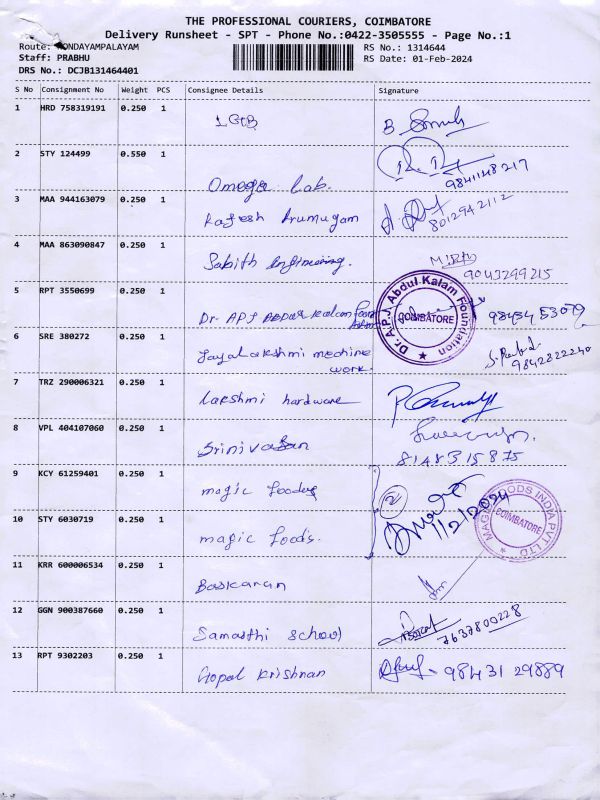 THE PROFESSIONAL COURIERS, COIMBATORE
Delivery Runsheet - SPT - Phone No.:0422-3505555 - Page No.:1
Route: KONDAYAMPALAYAM
RS No.: 1314644
Staff: PRABHU
RS Date: 01-Feb-2024
DRS No.: DCJB131464401
S No Consignment No Weight PCS Consignee Details Signature
1 HRD 758319191 0.250 1 LGB
2 STY 124499 0.550 1 Omega Lab. 9841148217
3 MAA 944163079 0.250 1 Rajesh Arumugam 8012942112
4 MAA 863090847 0.250 1 Sabith Engineering. 9043299215
5 RPT 3550699 0.250 1 Dr. APJ Abdul Kalam 9843453079
Dr. A.P.J. Abdul Kalam Foundation
COIMBATORE
6 SRE 380272 0.250 1 Jayalakshmi mechine
work. 9842822240
7 TRZ 290006321 0.250 1 Lakshmi hardware
8 VPL 404107060 0.250 1 Srinivasan
8148315875
9 KCY 61259401 0.250 1 magic foods 2
1/2/2024
10 STY 6030719 0.250 1 magic foods.
MAGIC FOODS INDIA PVT LTD
COIMBATORE
11 KRR 600006534 0.250 1 Baskaran
12 GGN 900387660 0.250 1 Samasthi School 7637800228
13 RPT 9302203 0.250 1 Gopal Krishnan 98431 29889